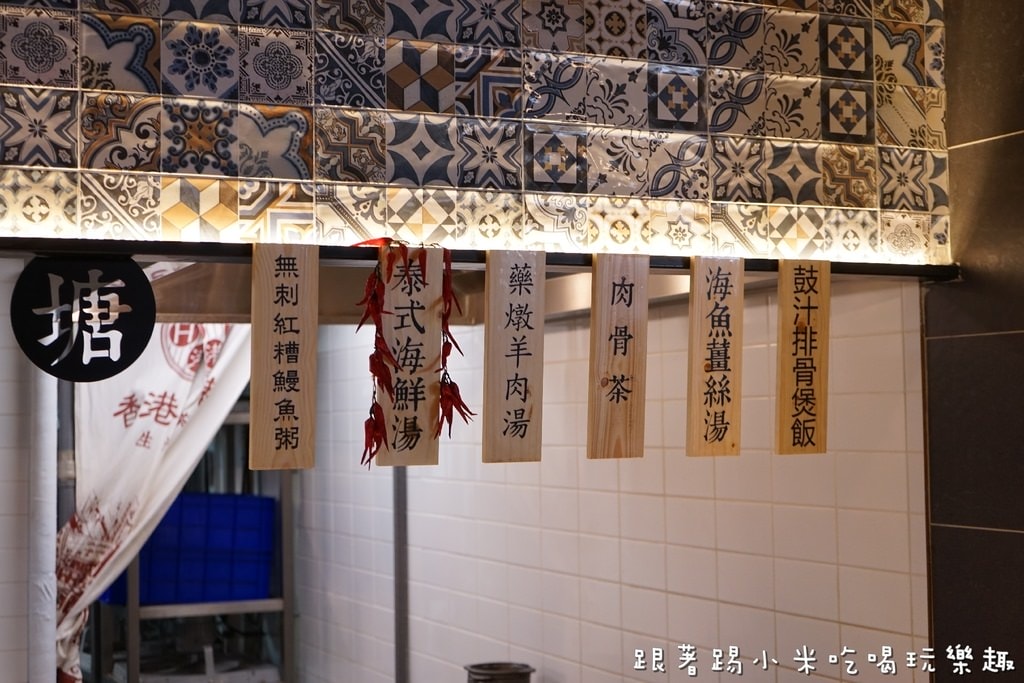 塘
無刺紅糟鰻魚粥
泰式海鮮湯
藥燉羊肉湯
肉骨茶
海魚薑絲湯
鼓汁排骨煲飯
香港
生
跟著踢小米吃喝玩樂趣